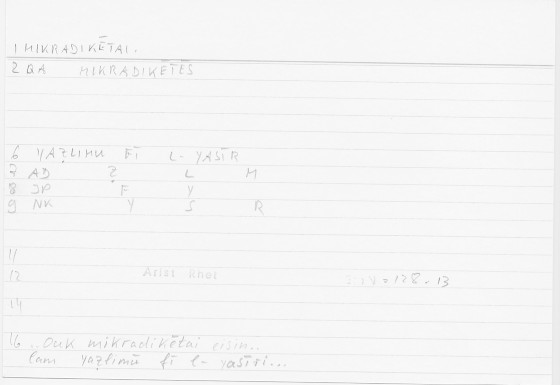 1 MIKRADIKĒTAI.
2 QA MIKRADIKĒTĒS
6 YAẒLIMU FĪ L-YASĪR
7 AD Ẓ L M
8 JP F Y
9 NK Y S R
11
12 Arist Rhet = 128.13
14
16 ..Ouk mikradikētai eisin..
lam yaẓlimū fī l-yasīri...